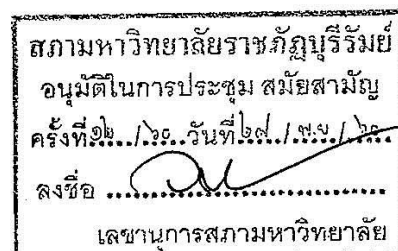 สภามหาวิทยาลัยราชภัฏบุรีรัมย์
อนุมัติในการประชุม สมัยสามัญ
ครั้งที่ ๑๒ / ๖๐ วันที่ ๒๗ / พ.ย / ๖๐
ลงชื่อ
เลขานุการสภามหาวิทยาลัย